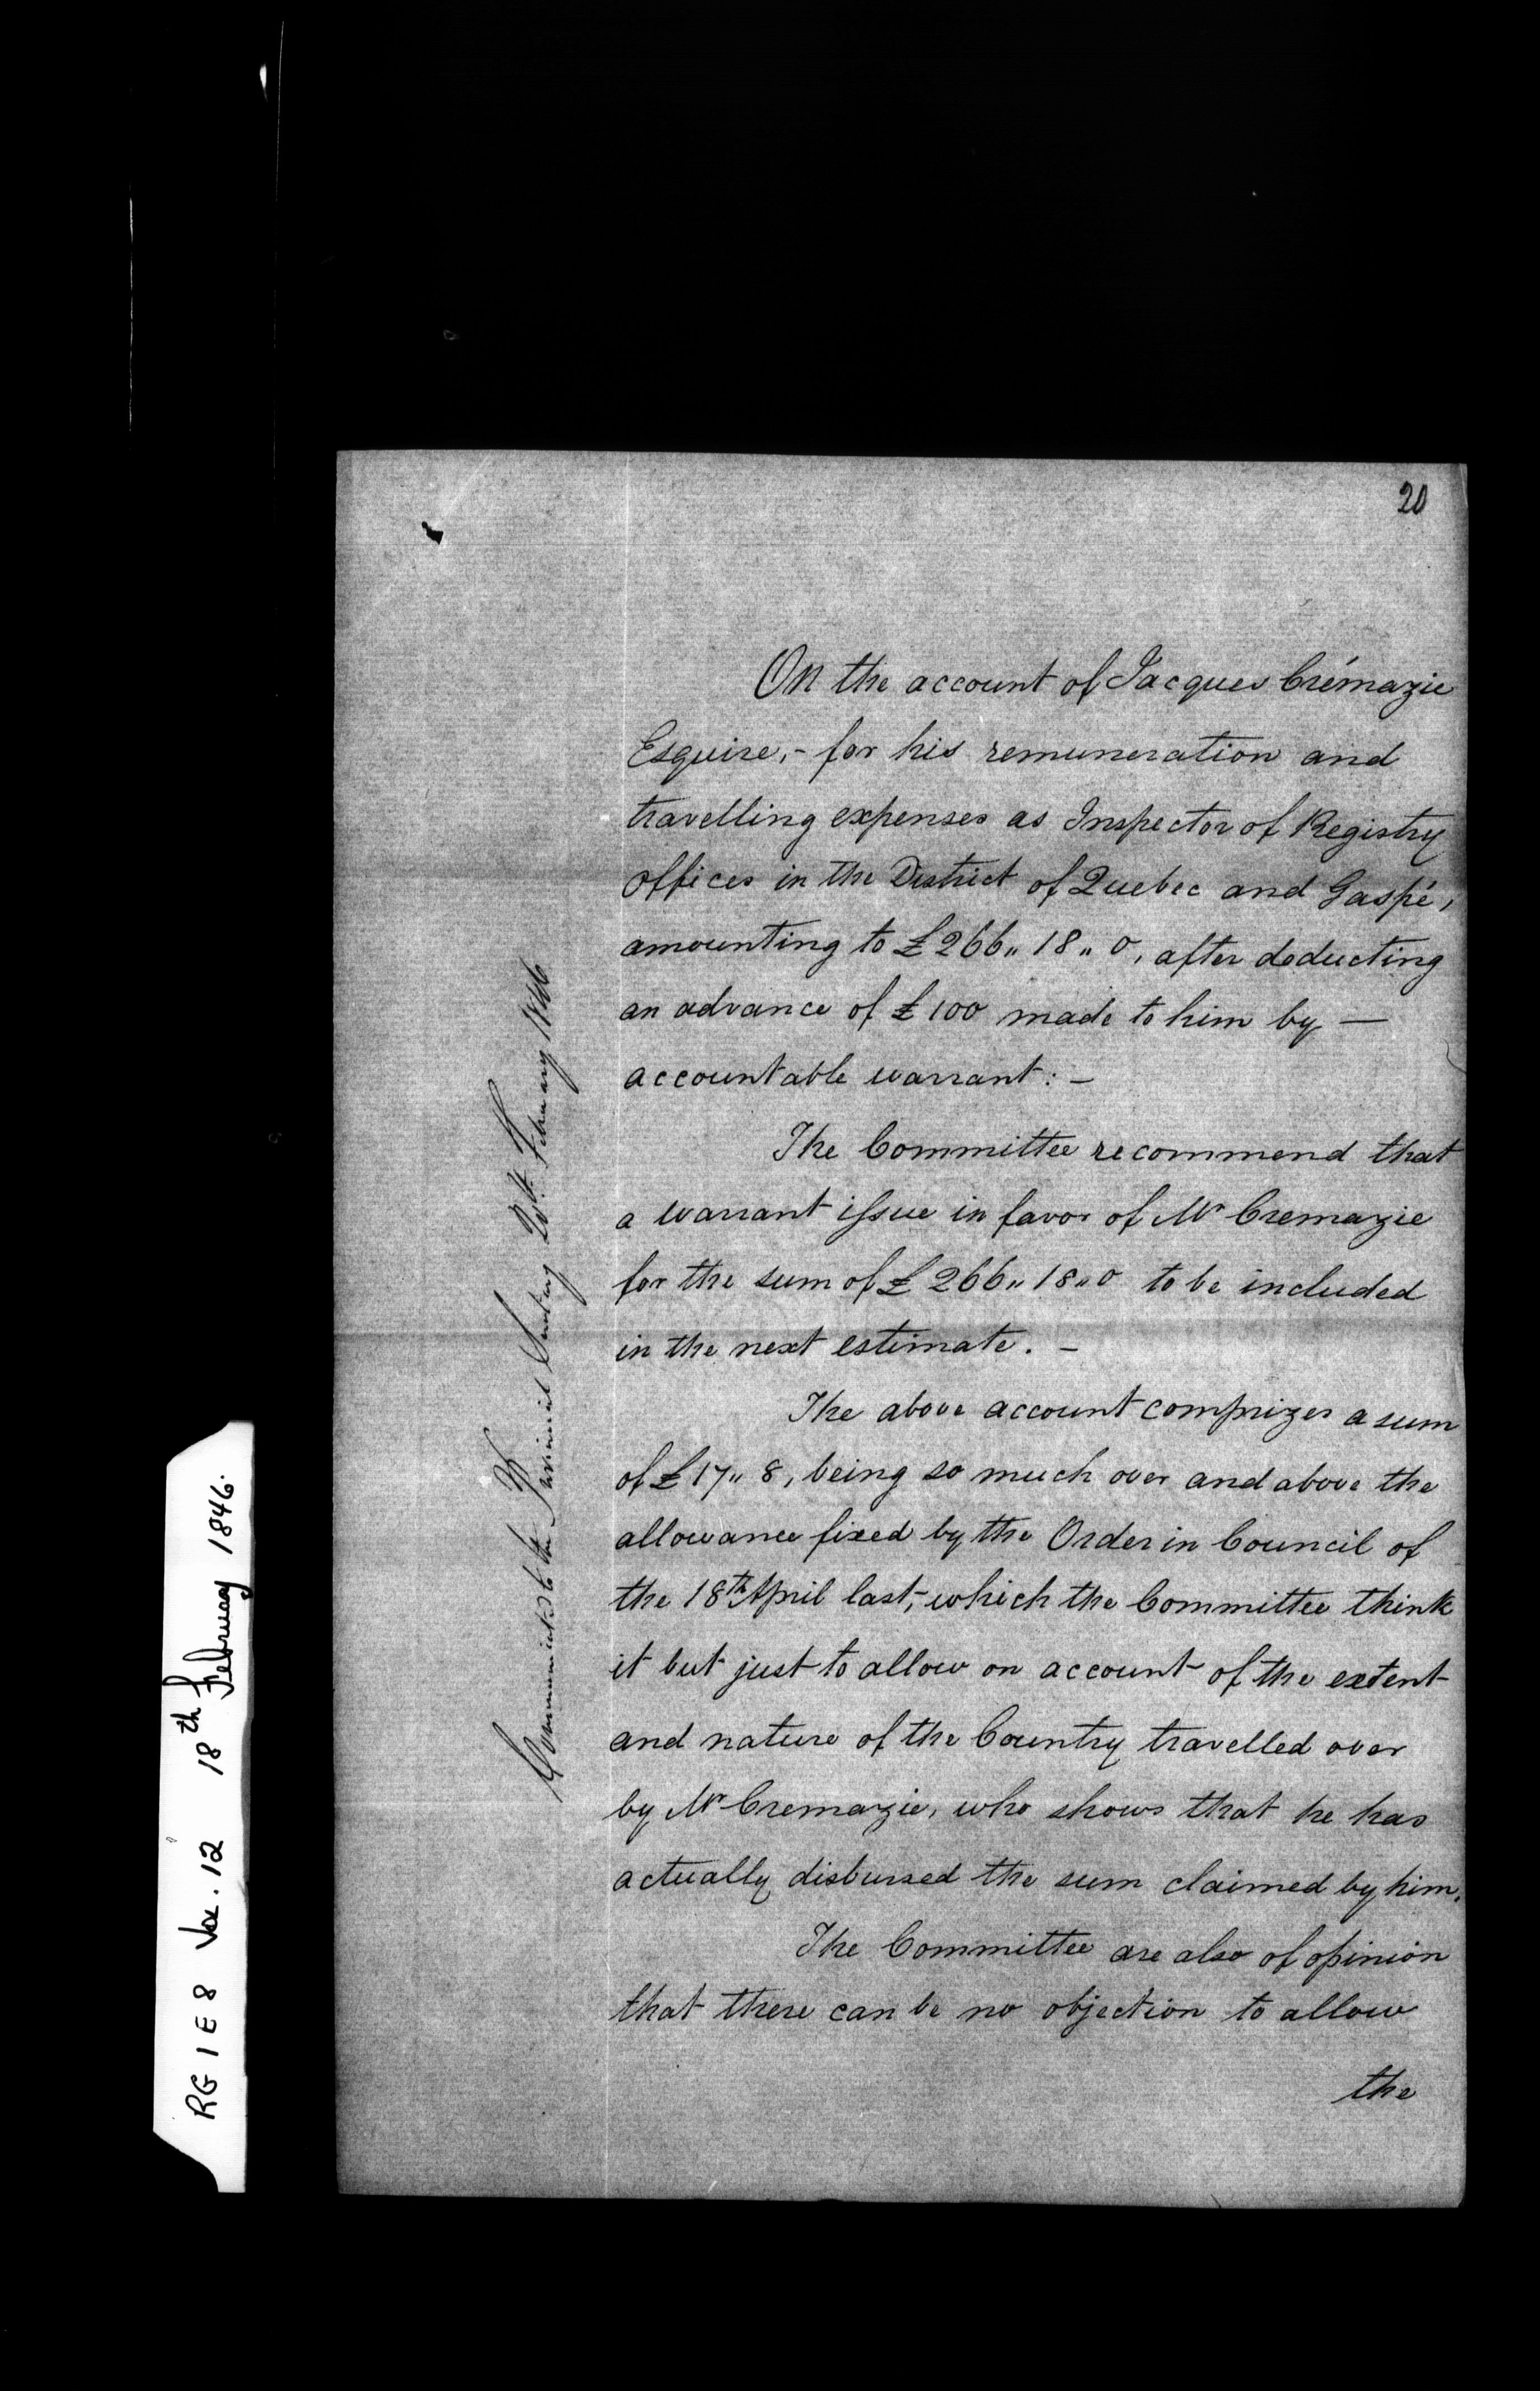 20
On the account of Jacques Crémazie
Esquire,- for his remuneration and
travelling expenses as Inspector of Registry
Offices in the District of Quebec and Gaspé,
amounting to £266,, 18,, 0, after deducting
an advance of £100 made to him by —
accountable warrant: —
The Committee recommend that
a warrant issue in favor of Mr Cremazie
for the sum of £ 266,, 18,, 0 to be included
in the next estimate. —
The above account comprizes a sum
of £17,, 8, being so much over and above the
allowance fixed by the Order in Council of
the 18th April last, which the Committee think
it but just to allow on account of the extent
and nature of the Country travelled over
by Mr Cremazie, who shows that he has
actually disbursed the sum claimed by him.
The Committee are also of opinion
that there can be no objection to allow
the
Communicated to the Provincial Secretary 20th February 1846
RG 1 E 8 Vol. 12 18th February 1846.